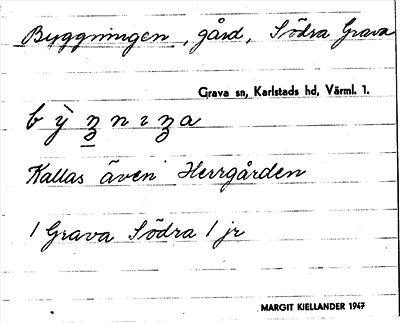 Byggningen, gård, Södra Grava
Grava sn, Karlstads hd, Värml. 1.
Kallas även Herrgården
1 Grava Södra 1 jr
MARGIT KIELLANDER 1947